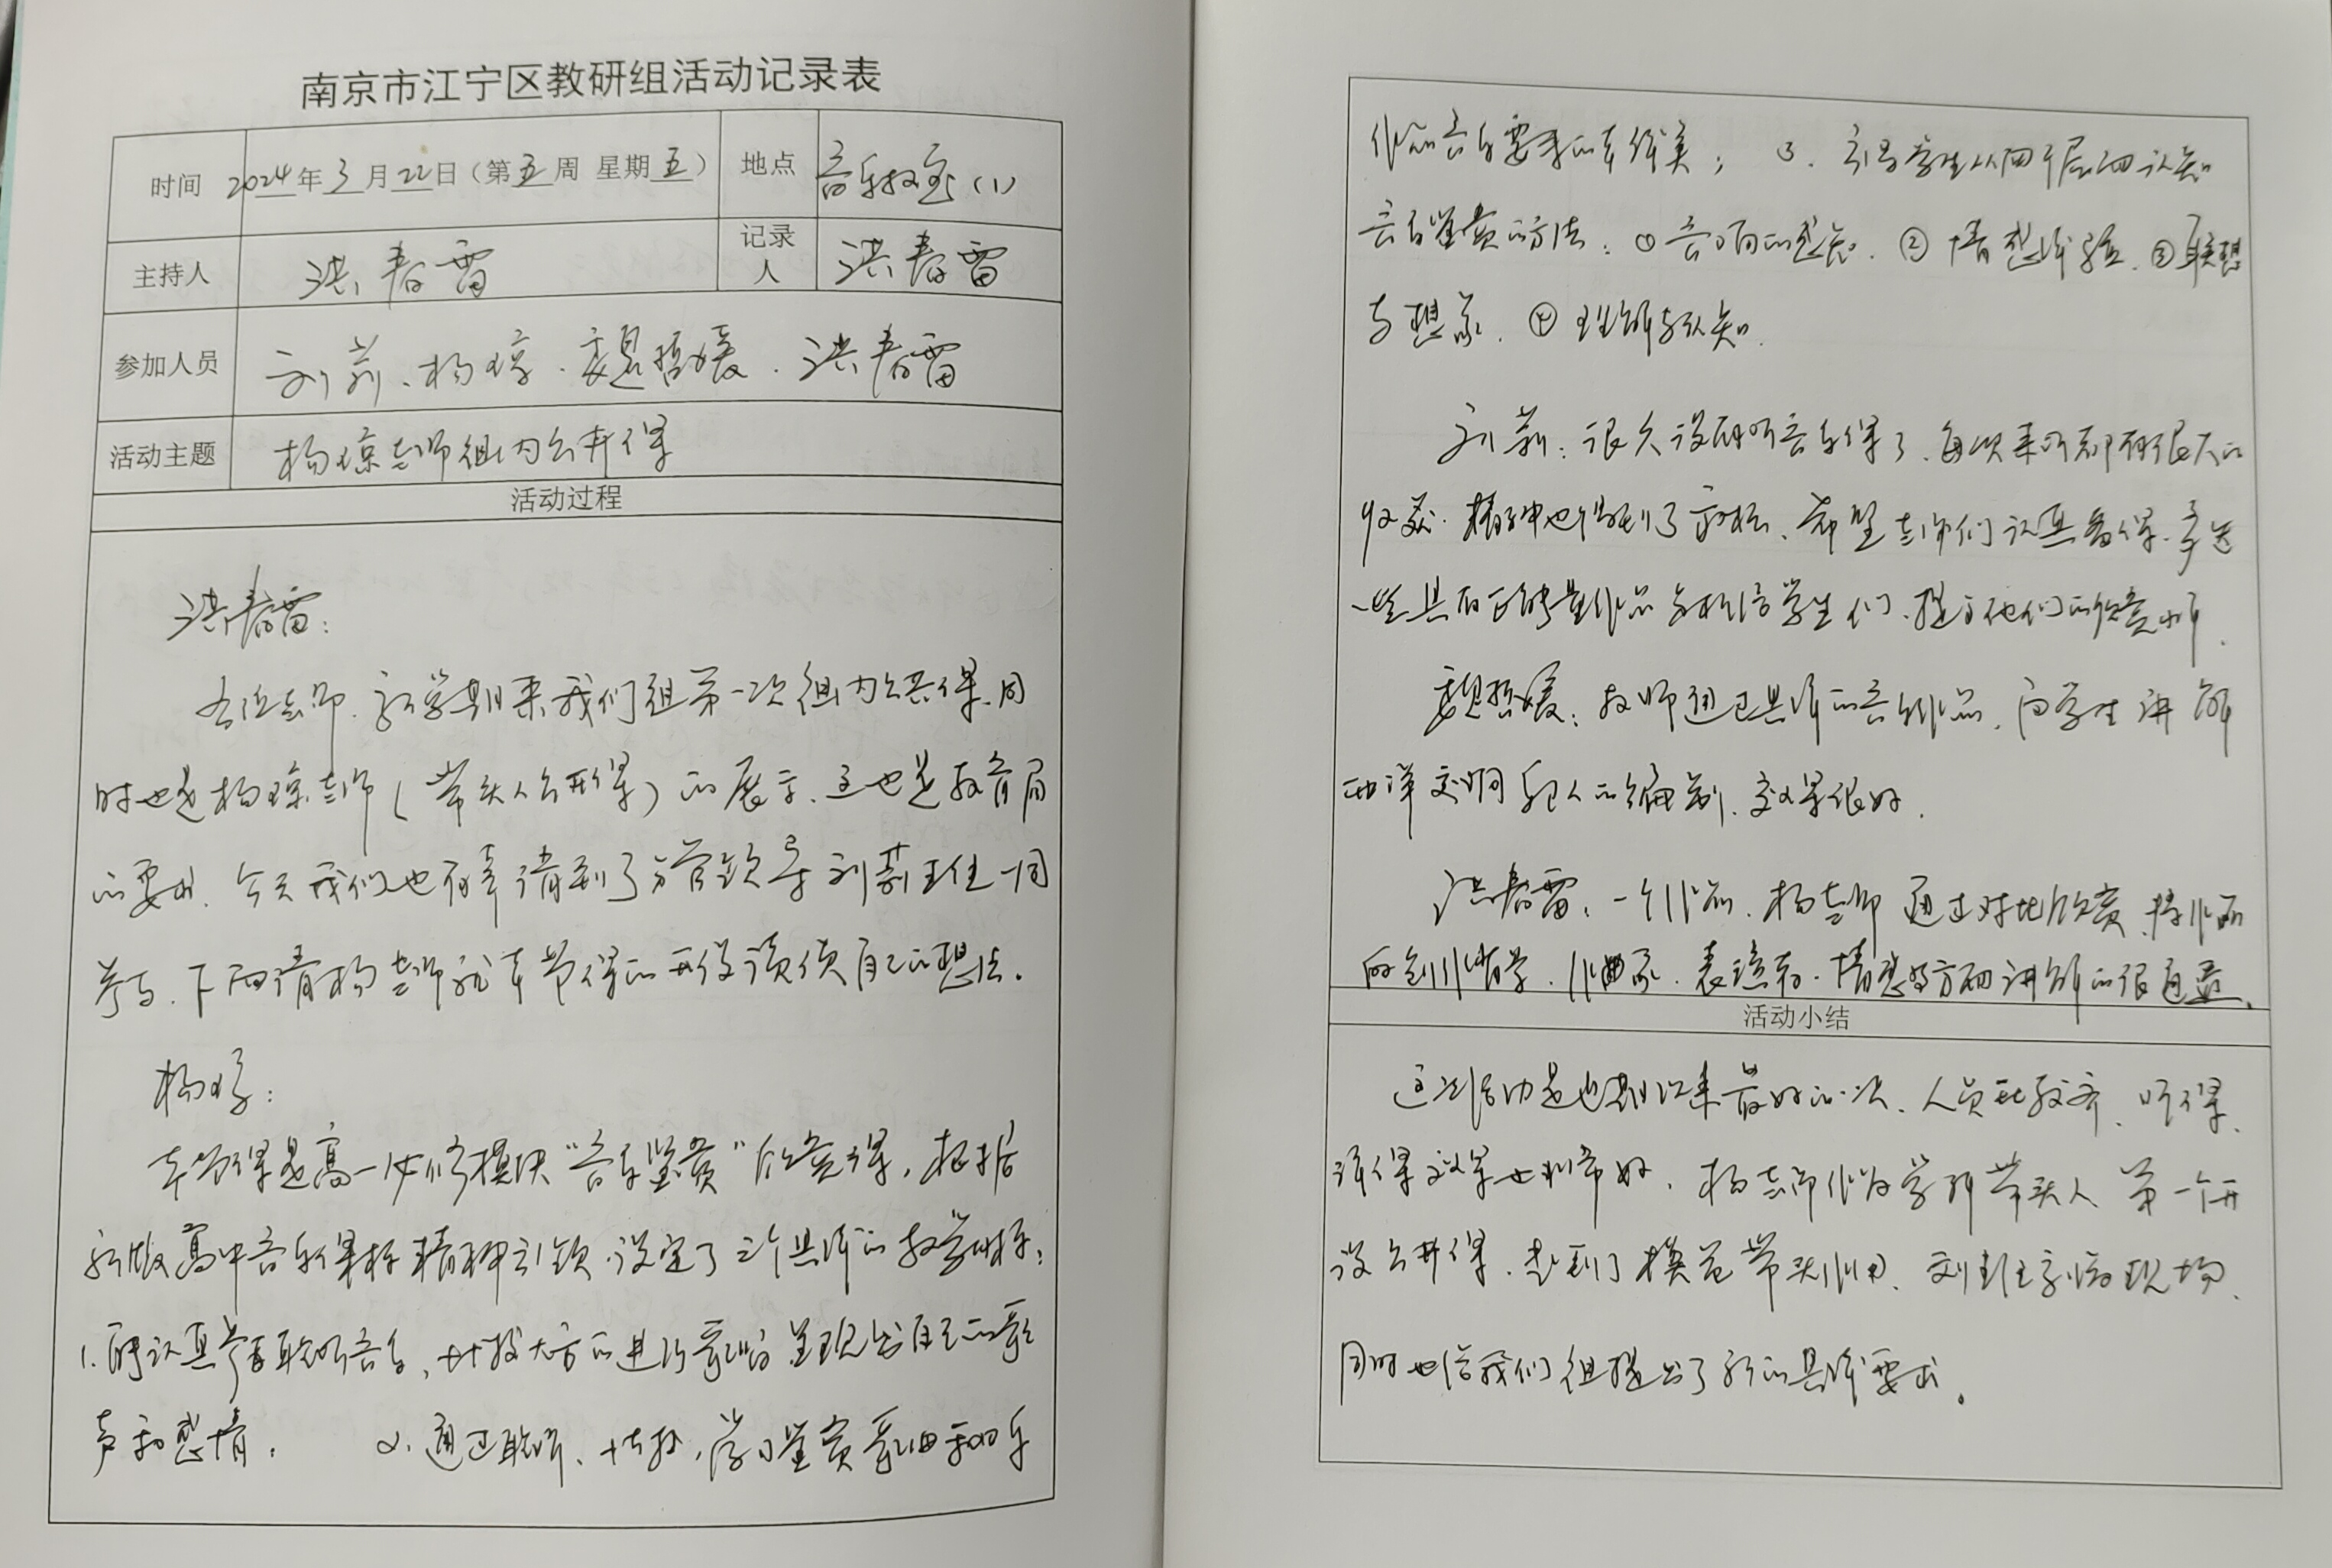 南京市江宁区教研组活动记录表
时间 2024年3月22日（第五周 星期五） 地点 音乐教室（1）
主持人 洪春雷 记录人 洪春雷
参加人员 刘莉、杨琼、魏哲媛、洪春雷
活动主题 杨琼老师组内公开课
活动过程
洪春雷：
各位老师，新学期来我们组第一次组内公开课，同
时也是杨琼老师（带头人公开课）的展示，这也是教育局
的要求，今天我们也有幸请到了分管领导刘莉主任一同
参与，下面请杨老师就本节课的开设谈谈自己的想法。
杨琼：
本节课是高一必修模块“音乐鉴赏”欣赏课，根据
新版高中音乐课标精神引领，设定了三个具体的教学目标：
1. 能认真参与聆听音乐，大方的进行歌唱，呈现出自己的歌
声和感情； 2. 通过聆听、学习鉴赏歌曲和
作品音乐要素的本体美； 3. 引导学生从四个层面认知
音乐鉴赏的方法：①音响的感知、②情感体验、③联想
与想象、④理解与认知。
刘莉：很久没有听音乐课了，每次来听都有很大的
收获，精神也得到了放松，希望老师们认真备课，多选
一些具有正能量作品分析给学生们，提高他们的欣赏水平。
魏哲媛：教师通过具体的音乐作品，向学生讲解
西洋交响乐队的编制，效果很好。
洪春雷：一个作品，杨老师通过对比欣赏，将作品
的创作背景、作曲家、表现、情感等方面讲解的很透。
活动小结
这次活动是近期以来最好的一次，人员比较齐，听课、
评课效果也非常好，杨老师作为学科带头人第一个开
设公开课，起到了模范带头作用，刘主任亲临现场，
同时也给我们组提出了新的具体要求。